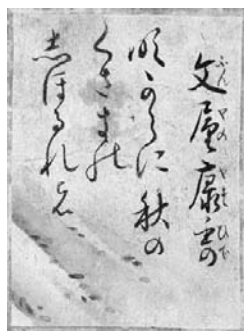 文屋康秀
吹からに 秋の
くさきの
しほるれは